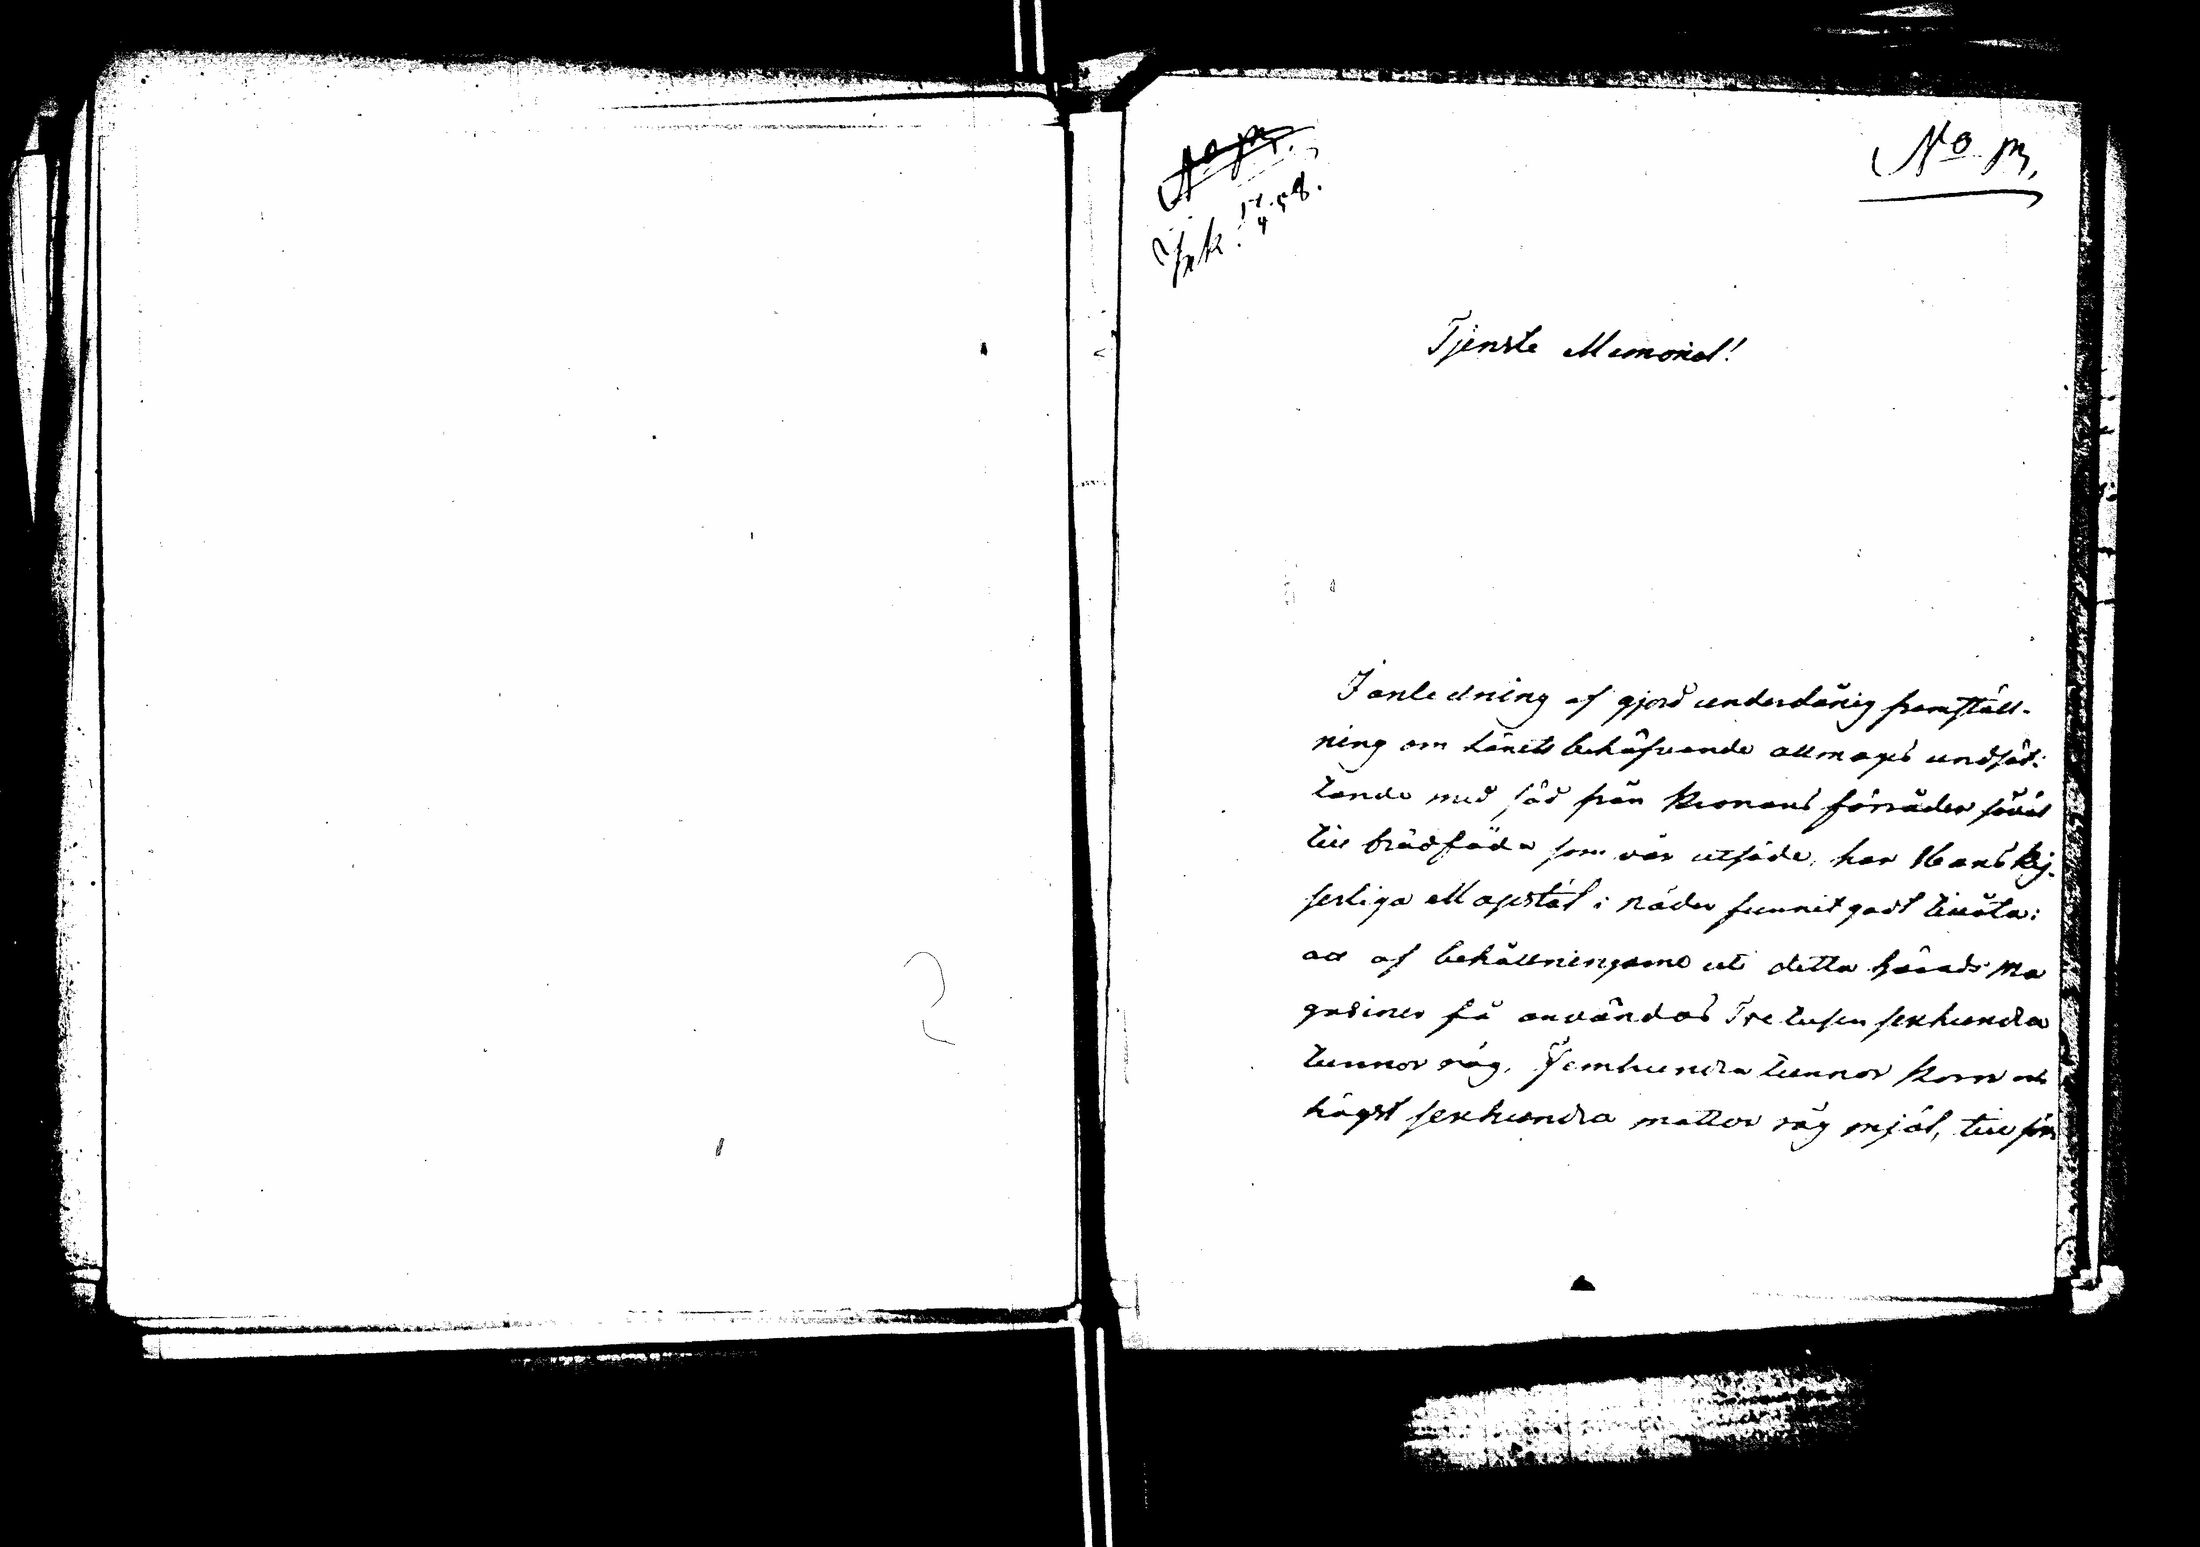 No m.
Ink. 17/4 58.
Tjenste Memorial!
I anledning af gjord underdånig framställ-
ning om länets behöfvande allmoges undsät:
tande med säd från Kronans förråder såväl
till brödföda som vår utsäde, har Hans Kej-
serliga Majestät i nåder funnit godt tillåta:
att af behållningarne uti detta härads Ma
gasiner få användas Tre tusen sexhundra
tunnor råg, Femhundra tunnor korn och
högst sexhundra mattor råg mjöl, till för